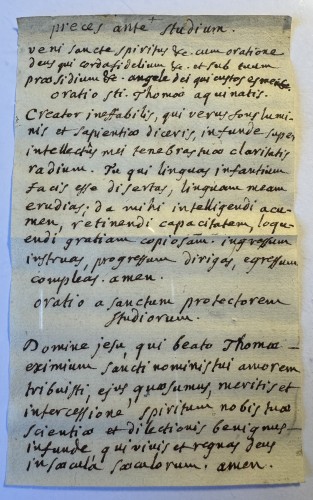 preces ante studium.
veni sancte spiritus &c. cum oratione
deus qui corda fidelium &c. et sub tuum
præsidium &c. angele dei qui custos es mei &c.
oratio sti. Thomæ aquinatis.
Creator ineffabilis, qui verus fons lumi-
nis et sapientiæ diceris, infunde super
intellectus mei tenebras tuæ claritatis
radium. Tu qui linguas infantium
facis esse disertas, linguam meam
erudias; da mihi intelligendi acu-
men, retinendi capacitatem, loqu-
endi gratiam copiosam. ingressum
instruas, progressum dirigas, egressum
compleas. amen.
oratio a sanctum protectorem
studiorum.
Domine jesu, qui beato Thomæ
eximium sancti nominis tui amorem
tribuisti, ejus quæsumus, meritis et
intercessione, spiritum nobis tuæ
scientiæ et dilectionis benignus
infunde, qui vivis et regnas deus
in sæcula sæculorum. amen.